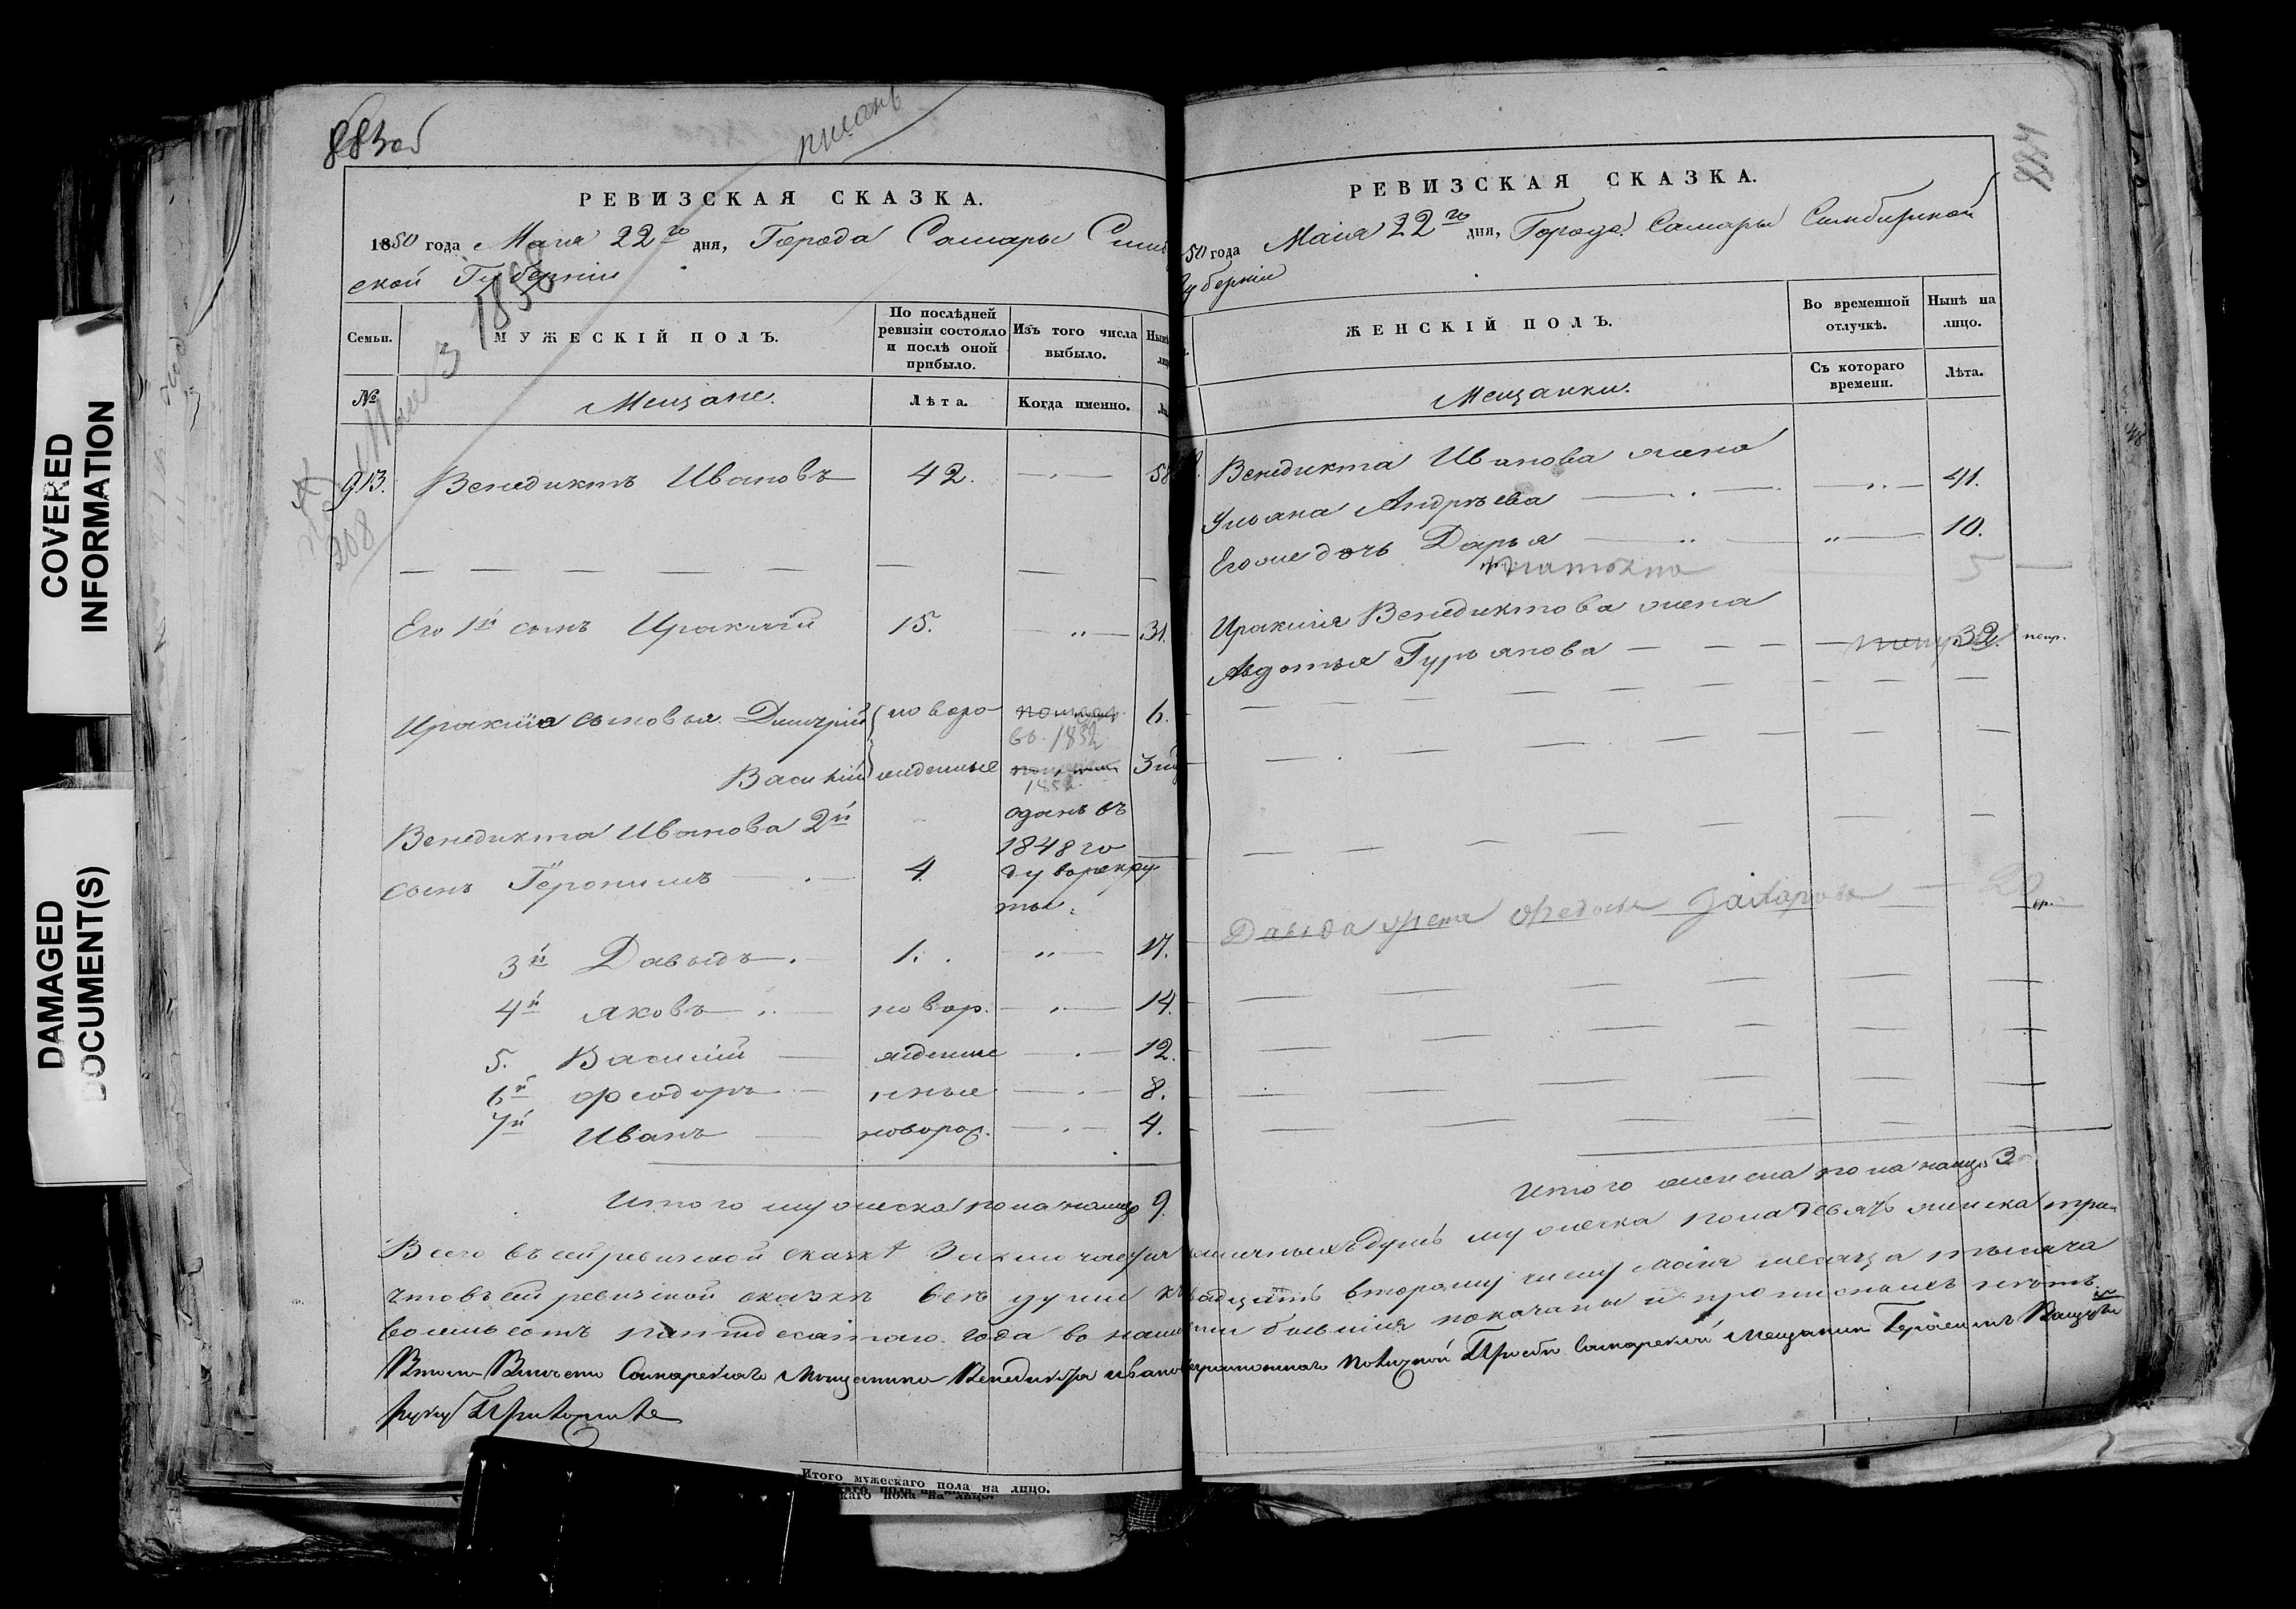 COVERED
INFORMATION
DAMAGED
DOCUMENT(S)
883 об
писанъ
РЕВИЗСКАЯ СКАЗКА.
1850 года Маія 22го дня, Города Самары Симб
ской Губерніи
1858
Маія 3
Семьи.
МУЖЕСКІЙ ПОЛЪ.
По послѣдней
ревизіи состояло
и послѣ оной
прибыло.
Изъ того числа
выбыло.
№
Мещане.
Лѣта.
Когда именно.
208
913. Венедиктъ Ивановъ 42. 58
Его 1й сынъ Ираклій 15. „ 31.
Ираклія сыновья Дмитрій новоро 6.
въ 1852
Василій жденные 3
185
Венедикта Иванова 2й
сынъ Геронимъ 4
отданъ въ
1848 го
ду в рекру
ты
3й Давыдъ 1. „ 17.
4й Яковъ новор. „ 14.
5. Василій жденные 12.
6й Феодоръ нные 8.
7й Иванъ новорож. 4.
Итого мужеска пола налицо 9.
884
РЕВИЗСКАЯ СКАЗКА.
50 года Маія 22го дня, Города Самары Симбирской
уберніи
ЖЕНСКІЙ ПОЛЪ.
Во временной
отлучкѣ.
Нынѣ на
лицо.
Мещанки.
Съ котораго
времени.
Лѣта.
Венедикта Иванова жена
Ульяна Андрѣева „ 41.
Его же дочь Дарья „ 10.
5
Ираклія Венедиктова жена
Авдотья Гурьянова 32.
Давыда жена Федосья Захарова
Итого женска пола налицо 3
Всего въ сей ревизской сказкѣ Заключается наличныхъ душъ мужеска пола девять женска три
что въ сей ревизской сказкѣ всѣ души къ двадцать второму числу Маія месяца тысяча
восемь сотъ пятидесятаго года во налич показаны и
Самарскаго Мещанина Венедикта Ивано Самарскій Мещанин
руку Приложилъ
Итого мужескаго пола на лицо.
каго пола на лицо.